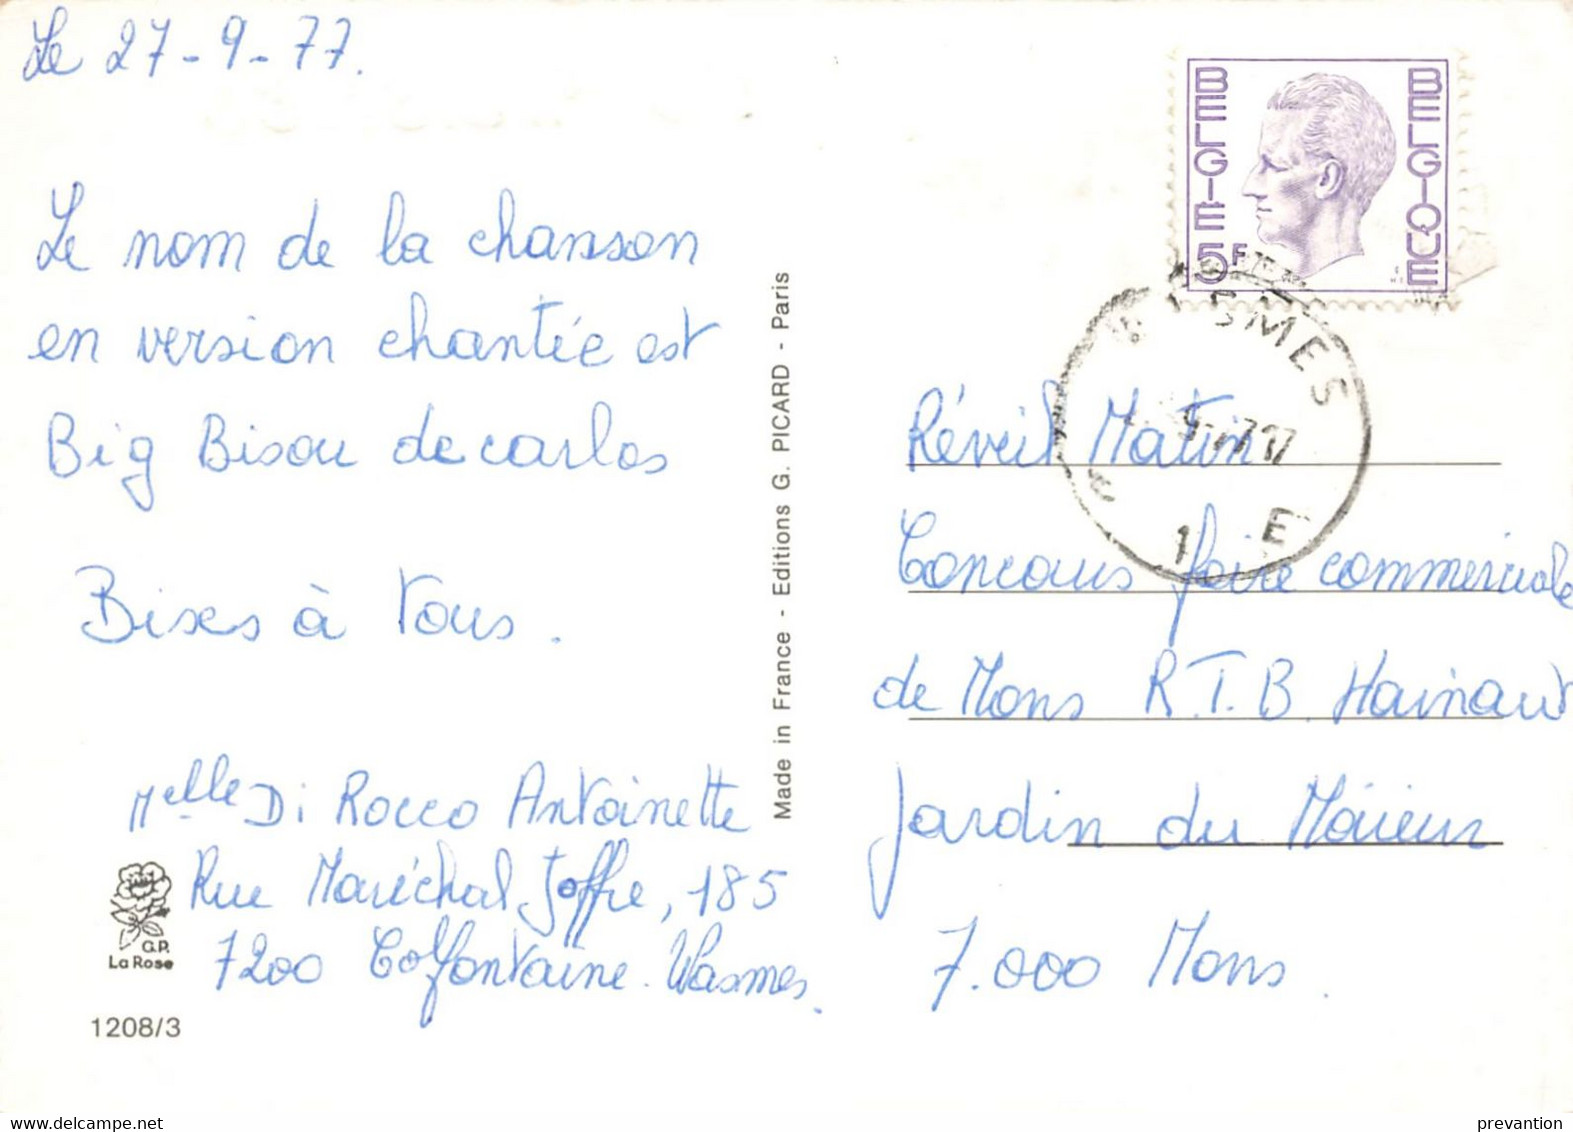 Le 27-9-77.
Le nom de la chanson
en version chantée est
Big Bisou de carlos
Bises à Vous.
Melle Di Rocco Antoinette
Rue Maréchal Joffre, 185
7200 Colfontaine. Wasmes.
G.P.
La Rose
1208/3
Made in France - Editions G. PICARD - Paris
BELGIE 5F BELGIQUE
WASMES
1 E
Réveil Matin
Concours foire commerciale
de Mons R.T.B Hainaut
Jardin du Maïeur
7.000 Mons.
delcampe.net
prevantion